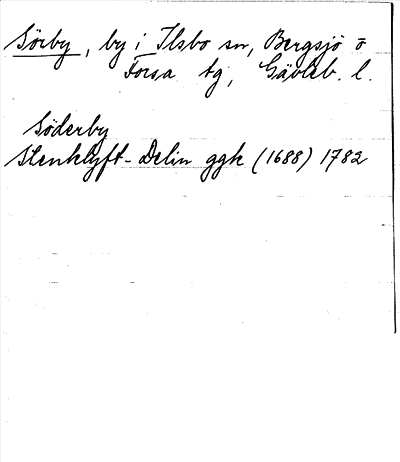 Sörby, by i Ilsbo sn, Bergsjö o
Forsa tg, Gävleb. l.
Söderby
Stenklyft-Delin ggk (1688) 1782